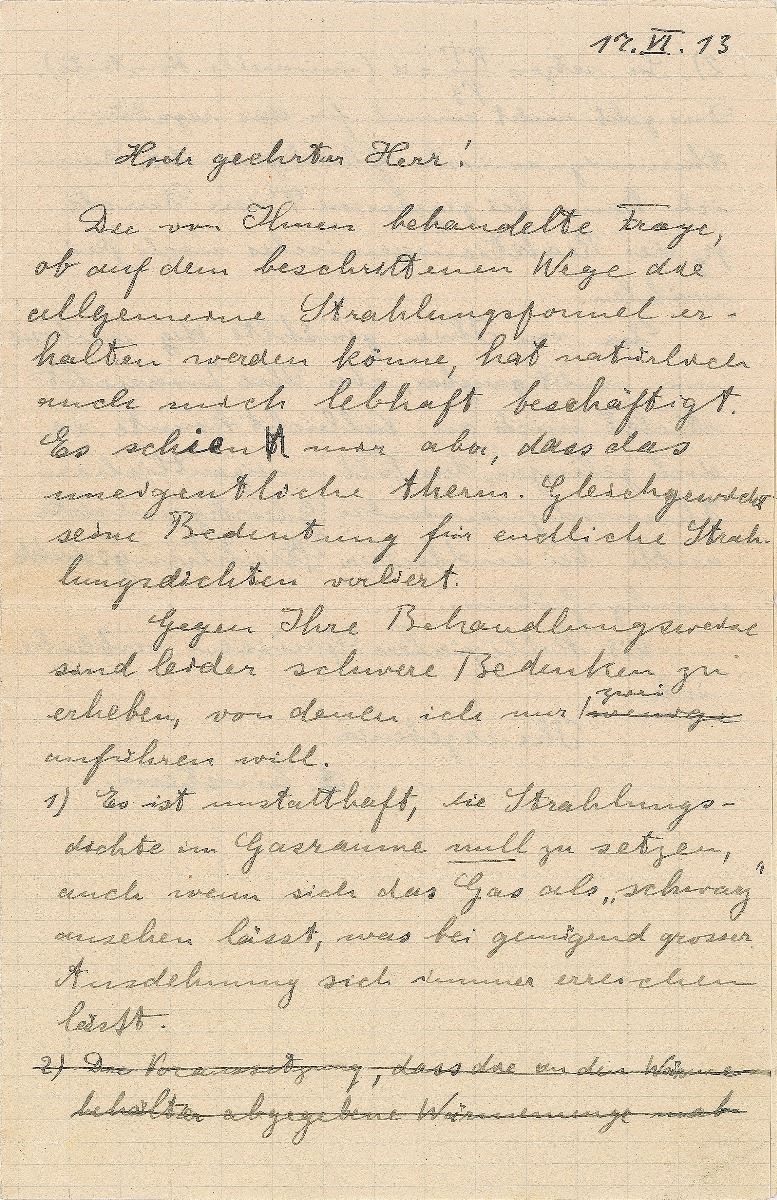 17. VI. 13
Hoch geehrter Herr!
Die von Ihnen behandelte Frage,
ob auf dem beschrittenen Wege die
allgemeine Strahlungsformel er-
halten werden könne, hat natürlich
auch mich lebhaft beschäftigt.
Es schien mir aber, dass das
uneigentliche therm. Gleichgewicht
seine Bedeutung für endliche Strah-
lungsdichten verliert.
Gegen Ihre Behandlungsweise
sind leider schwere Bedenken zu
erheben, von denen ich nur zwei wenige
anführen will.
1) Es ist unstatthaft, die Strahlungs-
dichte im Gasraume null zu setzen,
auch wenn sich das Gas als „schwarz"
ansehen lässt, was bei genügend grosser
Ausdehnung sich immer erreichen
lässt.
2) Die Voraussetzung, dass die an den Wärme-
behälter abgegebene Wärmemenge